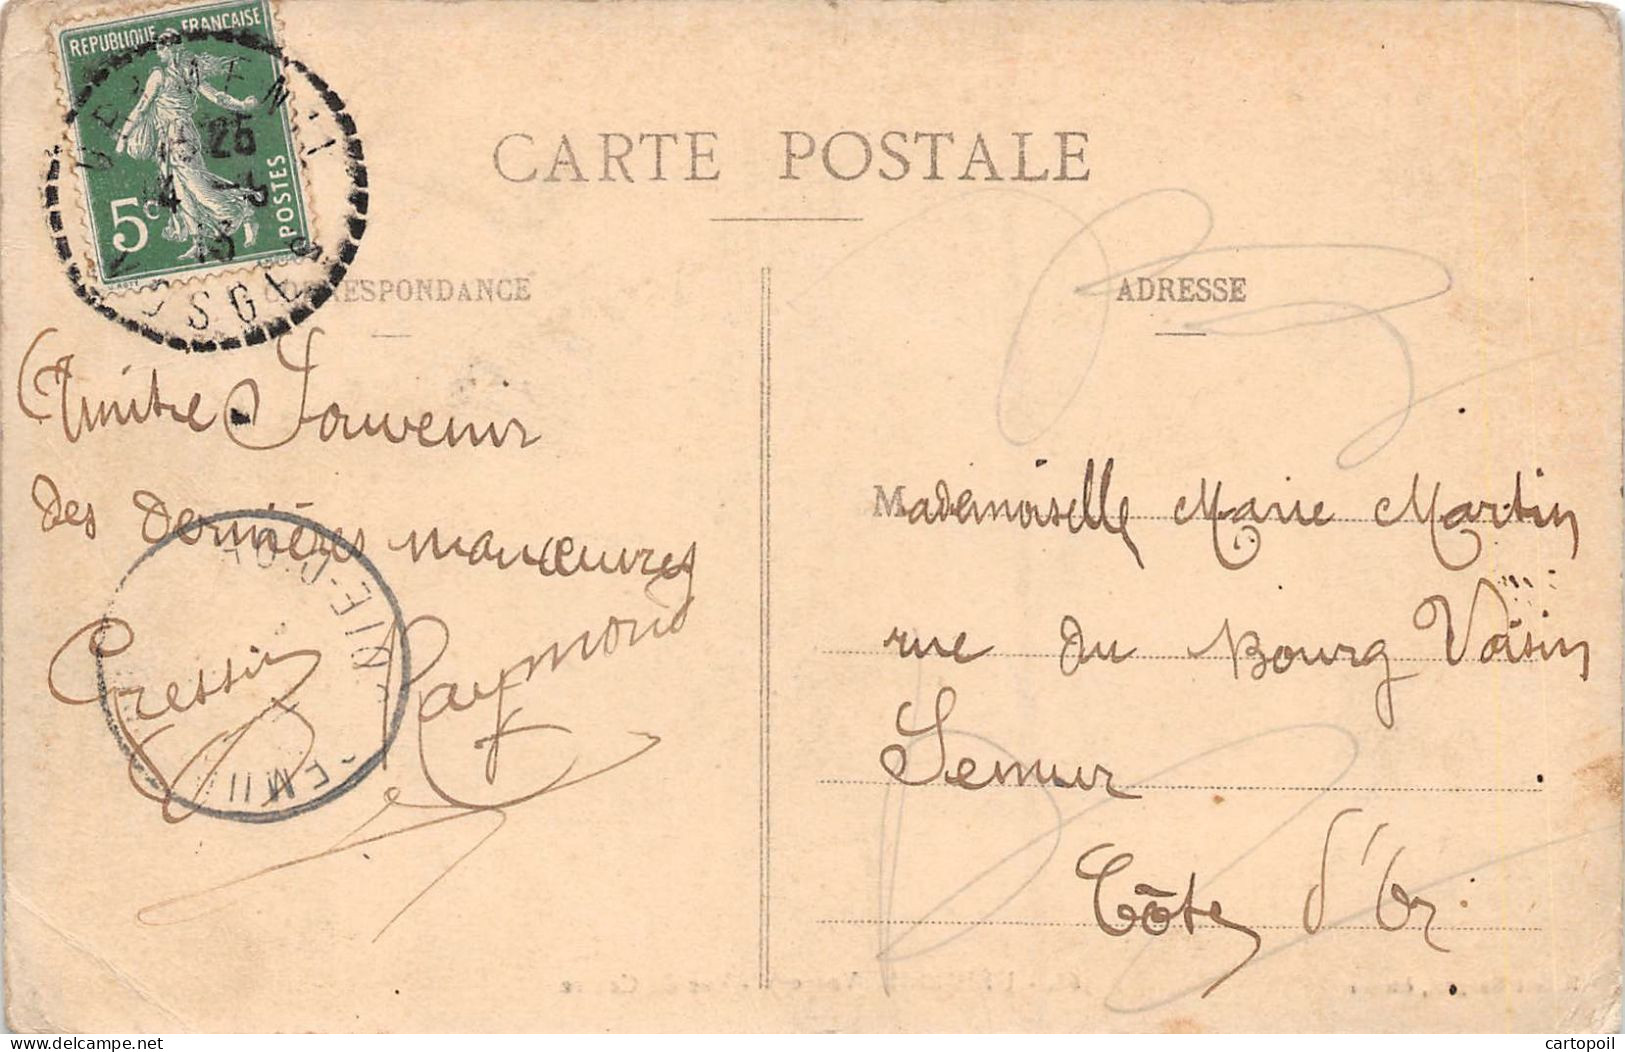 REPUBLIQUE FRANCAISE
5c
POSTES
25
VOSGES
CARTE POSTALE
CORRESPONDANCE
ADRESSE
Amitie Souvenir
des dernières manœuvres
Gressin Raymond
Mademoiselle Marie Martin
rue du Bourg Voisin
Semur
Côte d'Or
CÔTE-D'OR
SEMUR
cartopoil